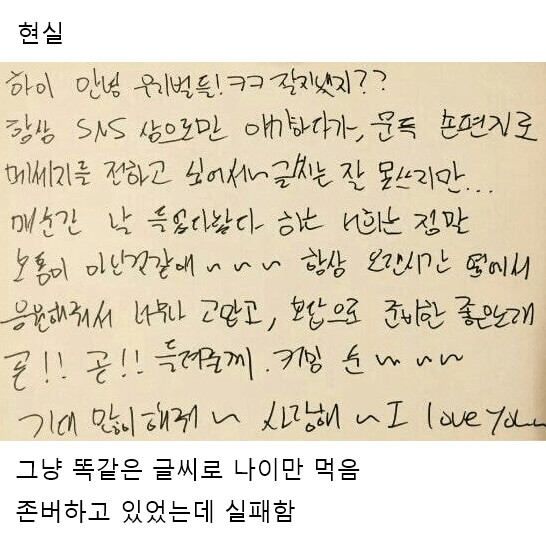 현실
하이 안녕 우리벌들! ㅋㅋ 잘지냈지??
항상 SNS 상으로만 얘기하다가, 문득 손편지로
메세지를 전하고 싶어서~ 글씨는 잘 못쓰지만...
매순간 날 하는 너희는 정말
보통이 아닌것같애 ~ ~ ~ 항상 오랜시간 옆에서
응원해줘서 너무나 고맙고, 보답으로 준비한 좋은노래
곧!! 곧!! 들려줄께. 커밍 순 ~ ~ ~
기대 많이해줘 ~ 사랑해 ~ I love You~
그냥 똑같은 글씨로 나이만 먹음
존버하고 있었는데 실패함